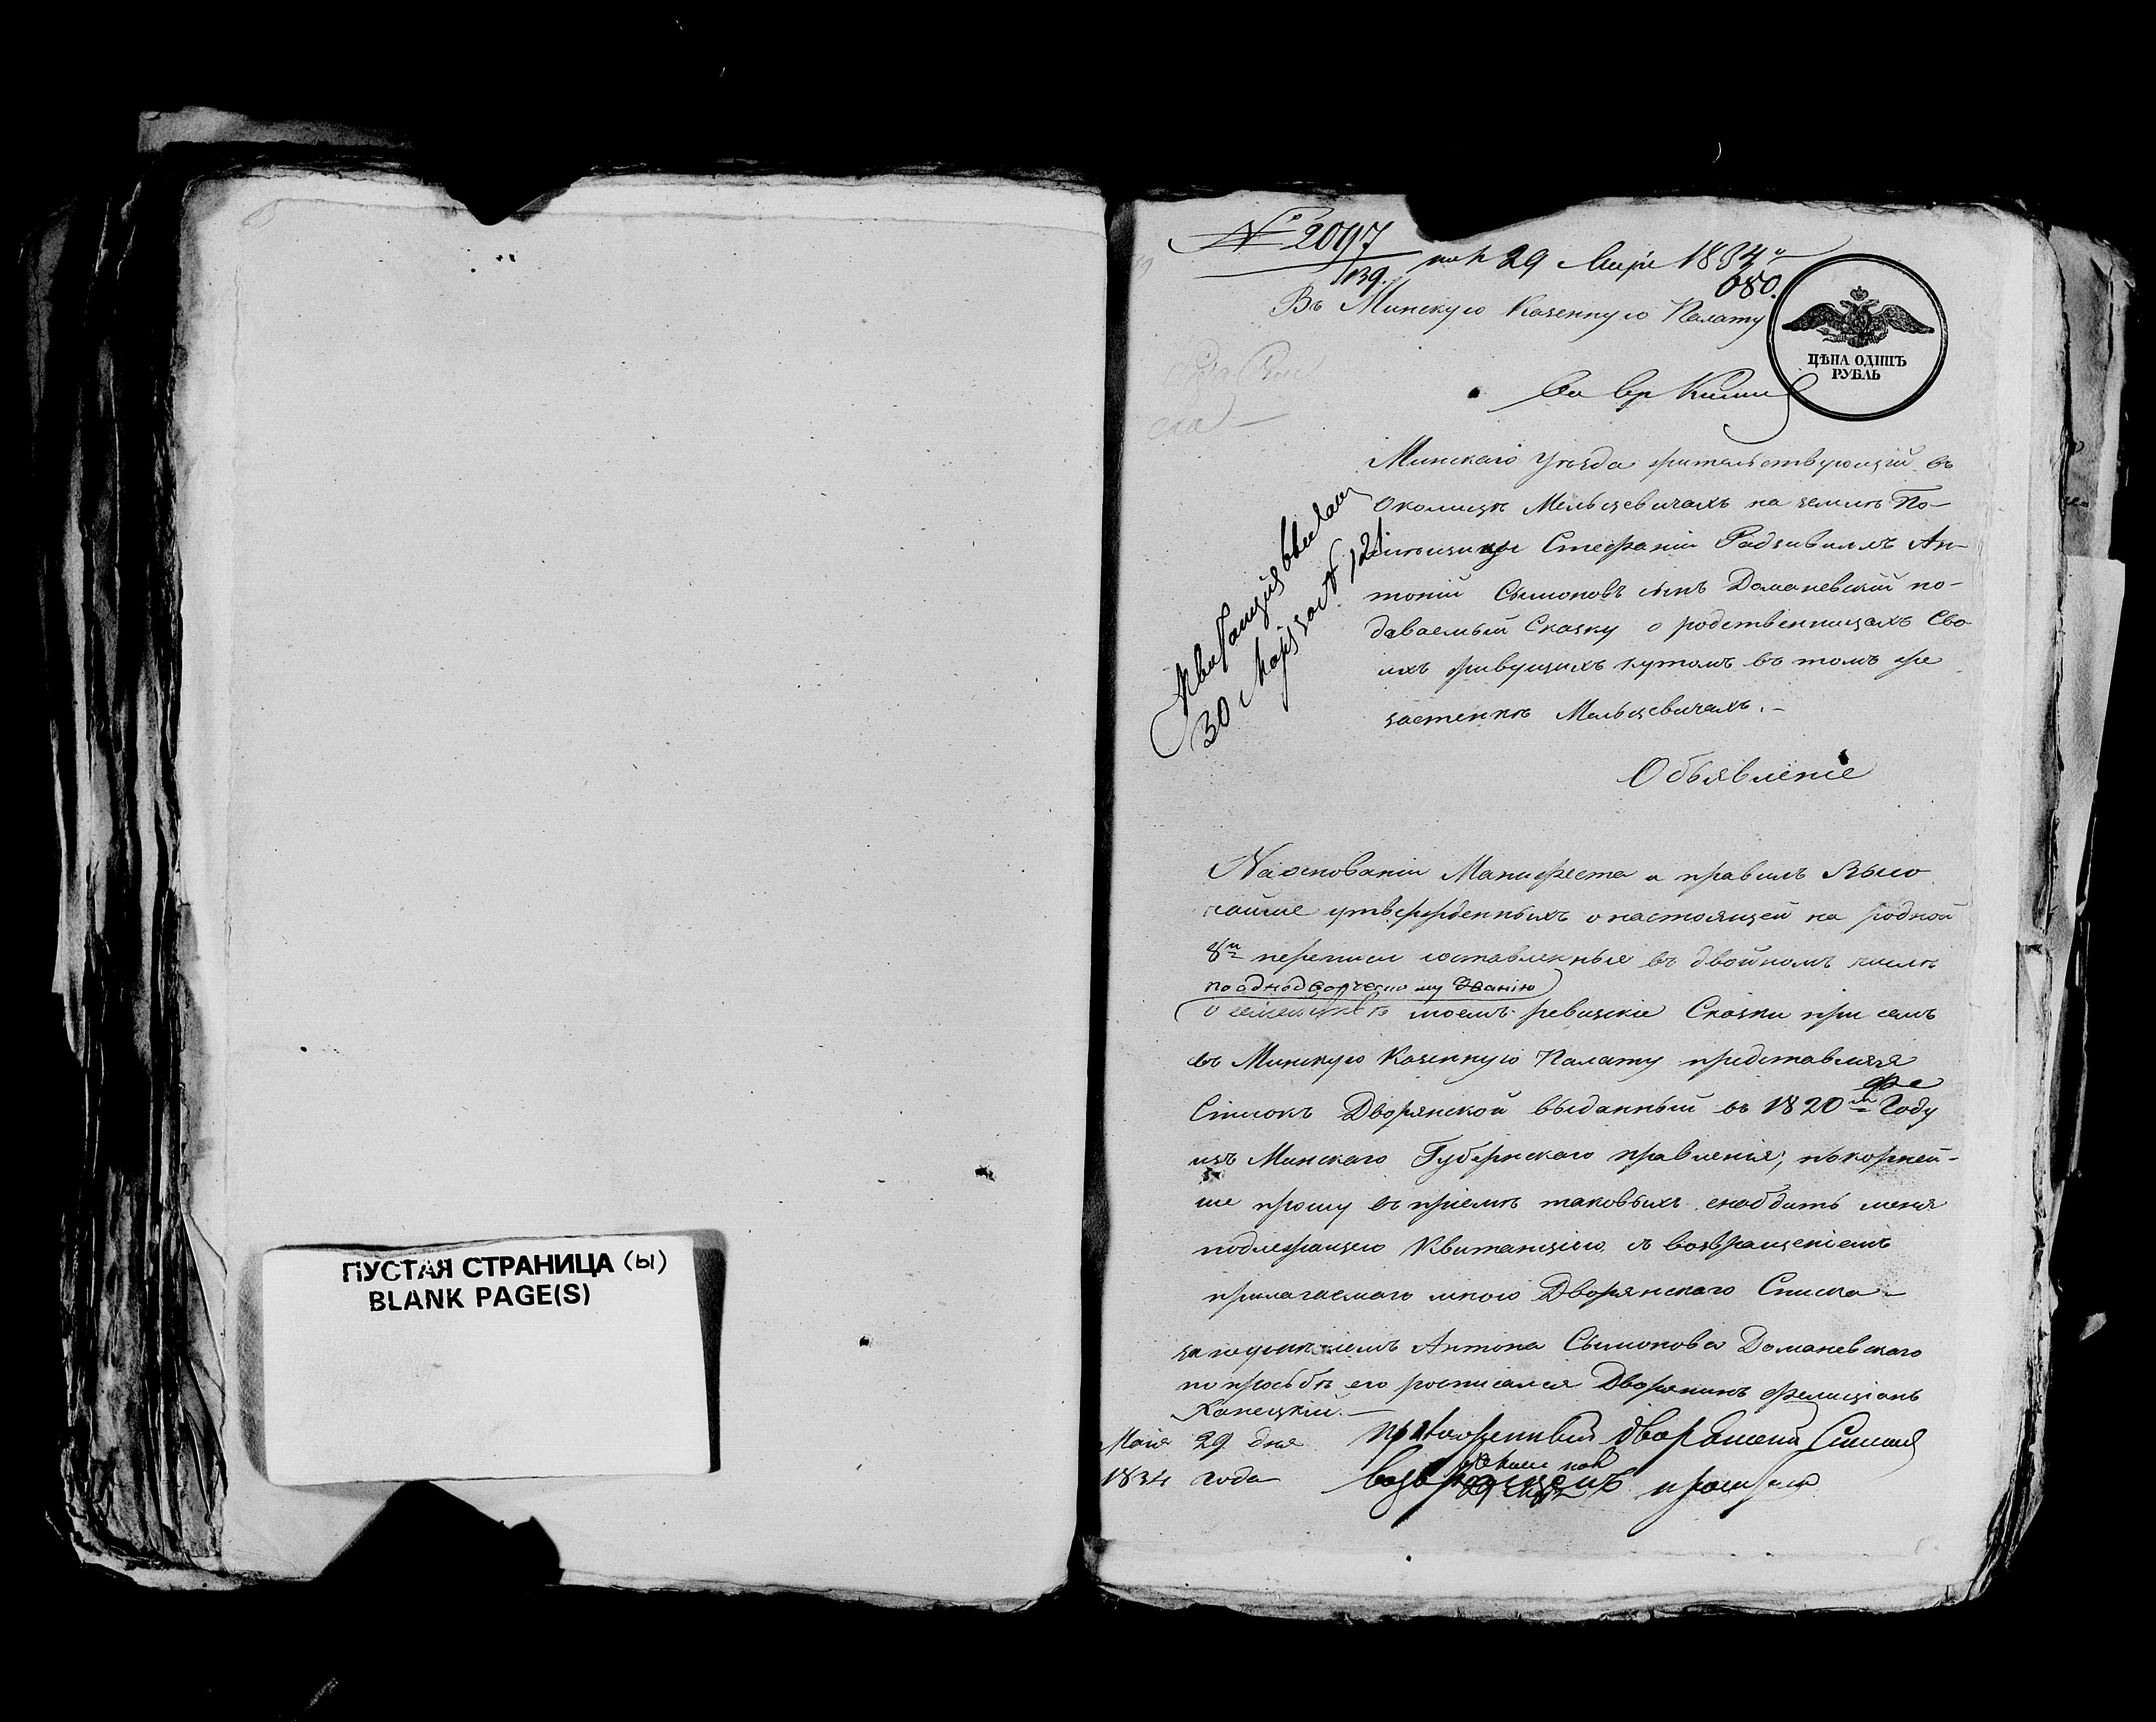 ПУСТАЯ СТРАНИЦА (Ы)
BLANK PAGE(S)
№ 2097
139.
29 Маія 1834
080.
Въ Минскую Казенную Палату
ЦѢНА ОДИНЪ
РУБЛЬ
Минскаго Уѣзда жительствующій въ
Околицѣ Мельцевичахъ на землѣ По-
Стефаніи Радзивилъ Ан-
тоній Сымоновъ сынъ Доманевскій по-
даваемый Сказку о родственницахъ Сво
ихъ живущихъ кутомъ въ томъ же
застенкѣ Мельцевичахъ.-
Квитанція выдана
30 Маія за № 121
Объявленіе
На основаніи Манифеста и правилъ Высо
чайше утвержденныхъ о настоящей народной
8й переписи составленные въ двойномъ числѣ
по однодворческому званію
о семействѣ моемъ ревизкіе Сказки при семъ
въ Минскую Казенную Палату представляя
же
Списокъ Дворянской выданный въ 1820м Году
изъ Минскаго Губернскаго правленія, покорней-
ше прошу въ пріемѣ таковыхъ снабдить меня
подлежащею Квитанціею съ возвращеніемъ
прилагаемаго мною Дворянскаго Списка.-
за неуменіемъ Антона Сымонова Доманевскаго
по просьбѣ его росписался Дворянинъ Фелиціанъ
Канецкій.-
Маія 29 дня
1834 года
дворянскій Списокъ